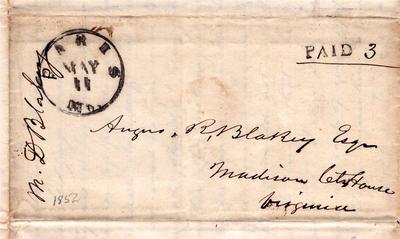 PARIS
MAY
11
MO.
PAID 3
M. D Blakey
Angus. R, Blakey Esqr
Madison Ct House
Virginia
1852